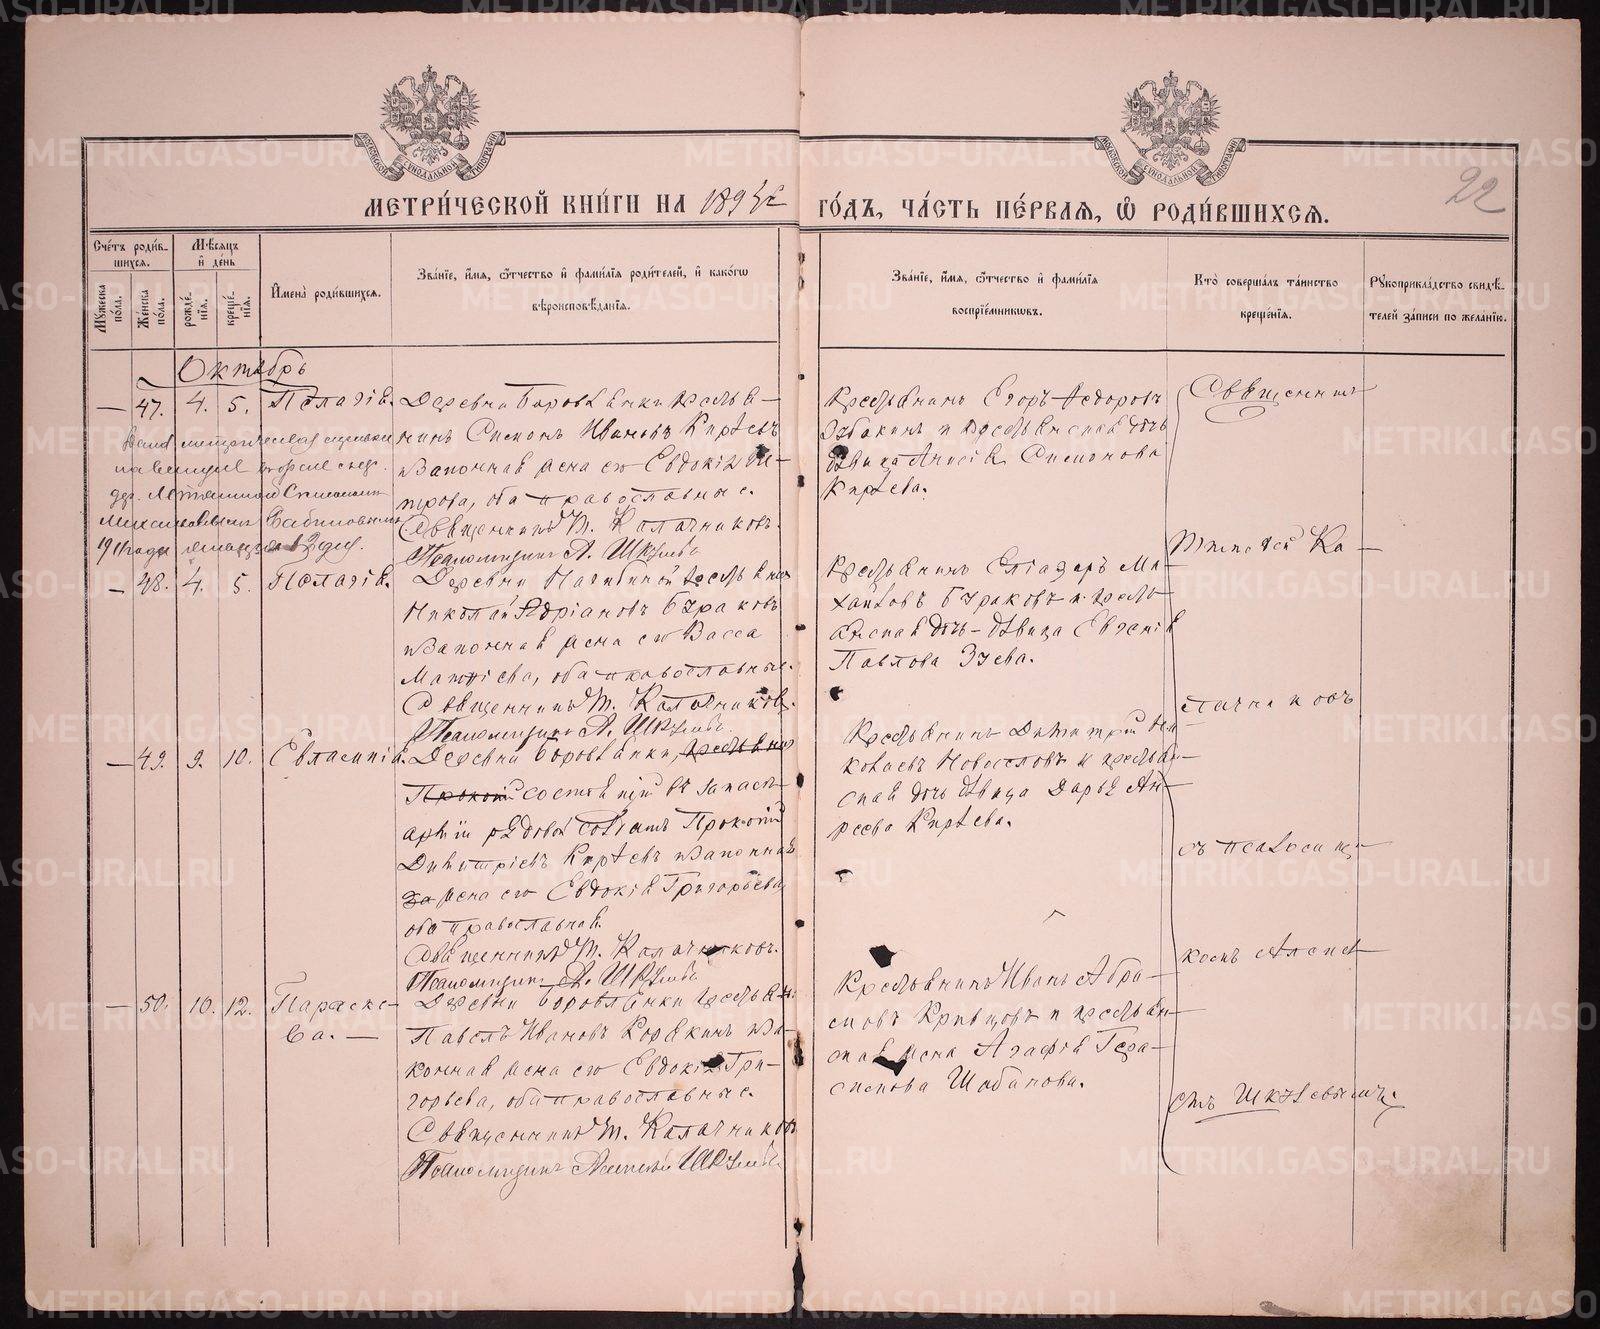 МЕТРИ́ЧЕСКОЙ КНИ́ГИ НА 1893й
ГО́ДЪ, ЧА́СТЬ ПЕ́РВАѦ, Ѡ҆ РОДИ́ВШИХСѦ.
22
Сче́тъ роди́в-
шихся.
Мѣ́сѧцъ
и҆ де́нь
Мꙋ́жеска по́ла.
Же́нска по́ла.
рожде́-
нїѧ.
креще́-
нїѧ.
И҆мена̀ роди́вшихсѧ.
Зва́нїе, и҆́мѧ, ѻ҆́тчество и҆ фами́лїѧ роди́телей, и҆ како́гѡ
вѣроисповѣ́данїѧ.
Зва́нїе, и҆́мѧ, ѻ҆́тчество и҆ фами́лїѧ
воспрїе́мникѡвъ.
Кто̀ соверша́лъ та́инство
креще́нїѧ.
Рꙋкоприкла́дство свидѣ́-
телей за́писи по жела́нїю.
Октябрь
— 47. 4. 5. Пелагія.
Деревни Боровлянки крестья-
нинъ Симеонъ Ивановъ Кирѣевъ
и законная жена его Евдокія
трова, оба православные.
Священникъ Т. Калачниковъ.
Псаломщикъ А. Шкулевъ
Крестьянинъ Егоръ Ѳедоровъ
Зубакинъ и крестьянская дочь
дѣвица Анисія Симеонова
Кирѣева.
Священник
Тимоѳей Ка-
лачниковъ
съ псаломщи-
комъ Алексѣ-
емъ Шкулевымъ.
1911 года
— 48. 4. 5. Пелагія.
Деревни крестьянинъ
Николай Адріановъ Бураковъ
и законная жена его Васса
Матѳіева, оба православные.
Священникъ Т. Калачниковъ.
Псаломщикъ А. Шкулевъ.
Крестьянинъ Еліазаръ Ми-
хайловъ Бураковъ и кресть-
янская дочь дѣвица Евгенія
Павлова Зуева.
— 49. 9. 10. Евлампія.
Деревни Боровлянки, крестьянинъ
Прокопій состоящій въ запасѣ
арміи рядовой солдатъ Прокопій
Димитріевъ Кирѣевъ и законная
за жена его Евдокія Григорьева
оба православные.
Священникъ Т. Калачниковъ.
Псаломщикъ А. Шкулевъ
Крестьянинъ Димитрій Ни-
колаевъ Новоселовъ и крестьян-
ская дочь дѣвица Дарья Ан-
реева Кирѣева.
— 50. 10. 12. Параске-
ва. —
Деревни Боровлянки крестьян.
Павелъ Ивановъ Корякинъ и за-
конная жена его Евдокія Гри-
горьева, оба православные.
Священникъ Т. Калачниковъ
Псаломщикъ Алексѣй Шкулевъ
Крестьянинъ Иванъ Абра-
мовъ Кривцовъ и крестьян-
ская жена Агафія Гера-
симова Шабанова.
METRIKI.GASO-URAL.RU